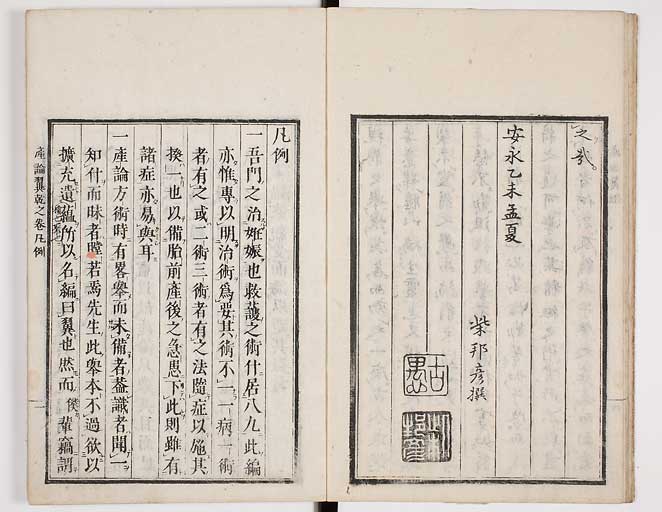 之哉
安永乙未孟夏
柴邦彦撰
古愚
柴邦彦
凡例
一吾門之治姙娠也救護之術什居八九此編
亦惟專以明治術爲要其術不一一病一術
者有之或二術三術者有之法隨症以施其
揆一也以備胎前產後之急思下此則雖有
諸症亦易與耳
一產論方術時有畧舉而未備者蓋識者聞一
知什而昧者瞠若焉先生此舉本不過欲以
擴充遺蘊所以名編曰翼也然而儓輩竊謂
產論翼乾之卷凡例
一